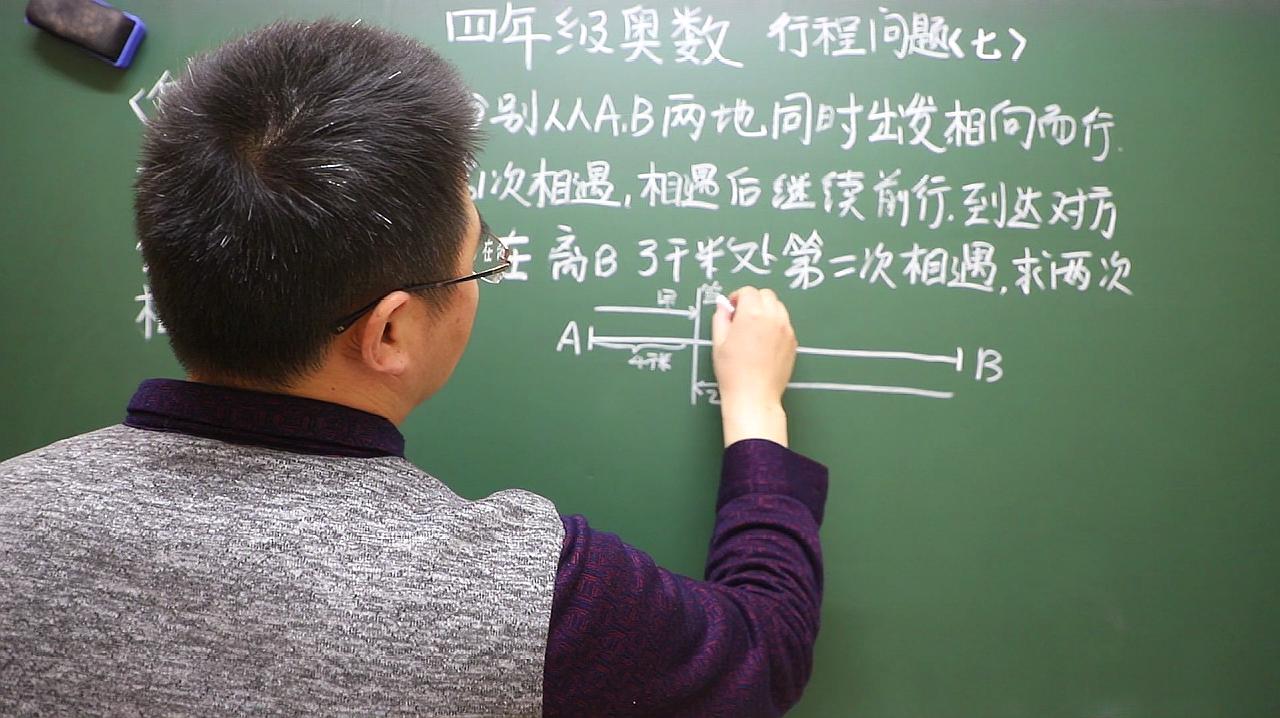 四年级奥数 行程问题<七>
别从A.B两地同时出发相向而行.
次相遇,相遇后继续前行.到达对方
在离B 3千米处第二次相遇,求两次
相
甲
A B
4千米
乙